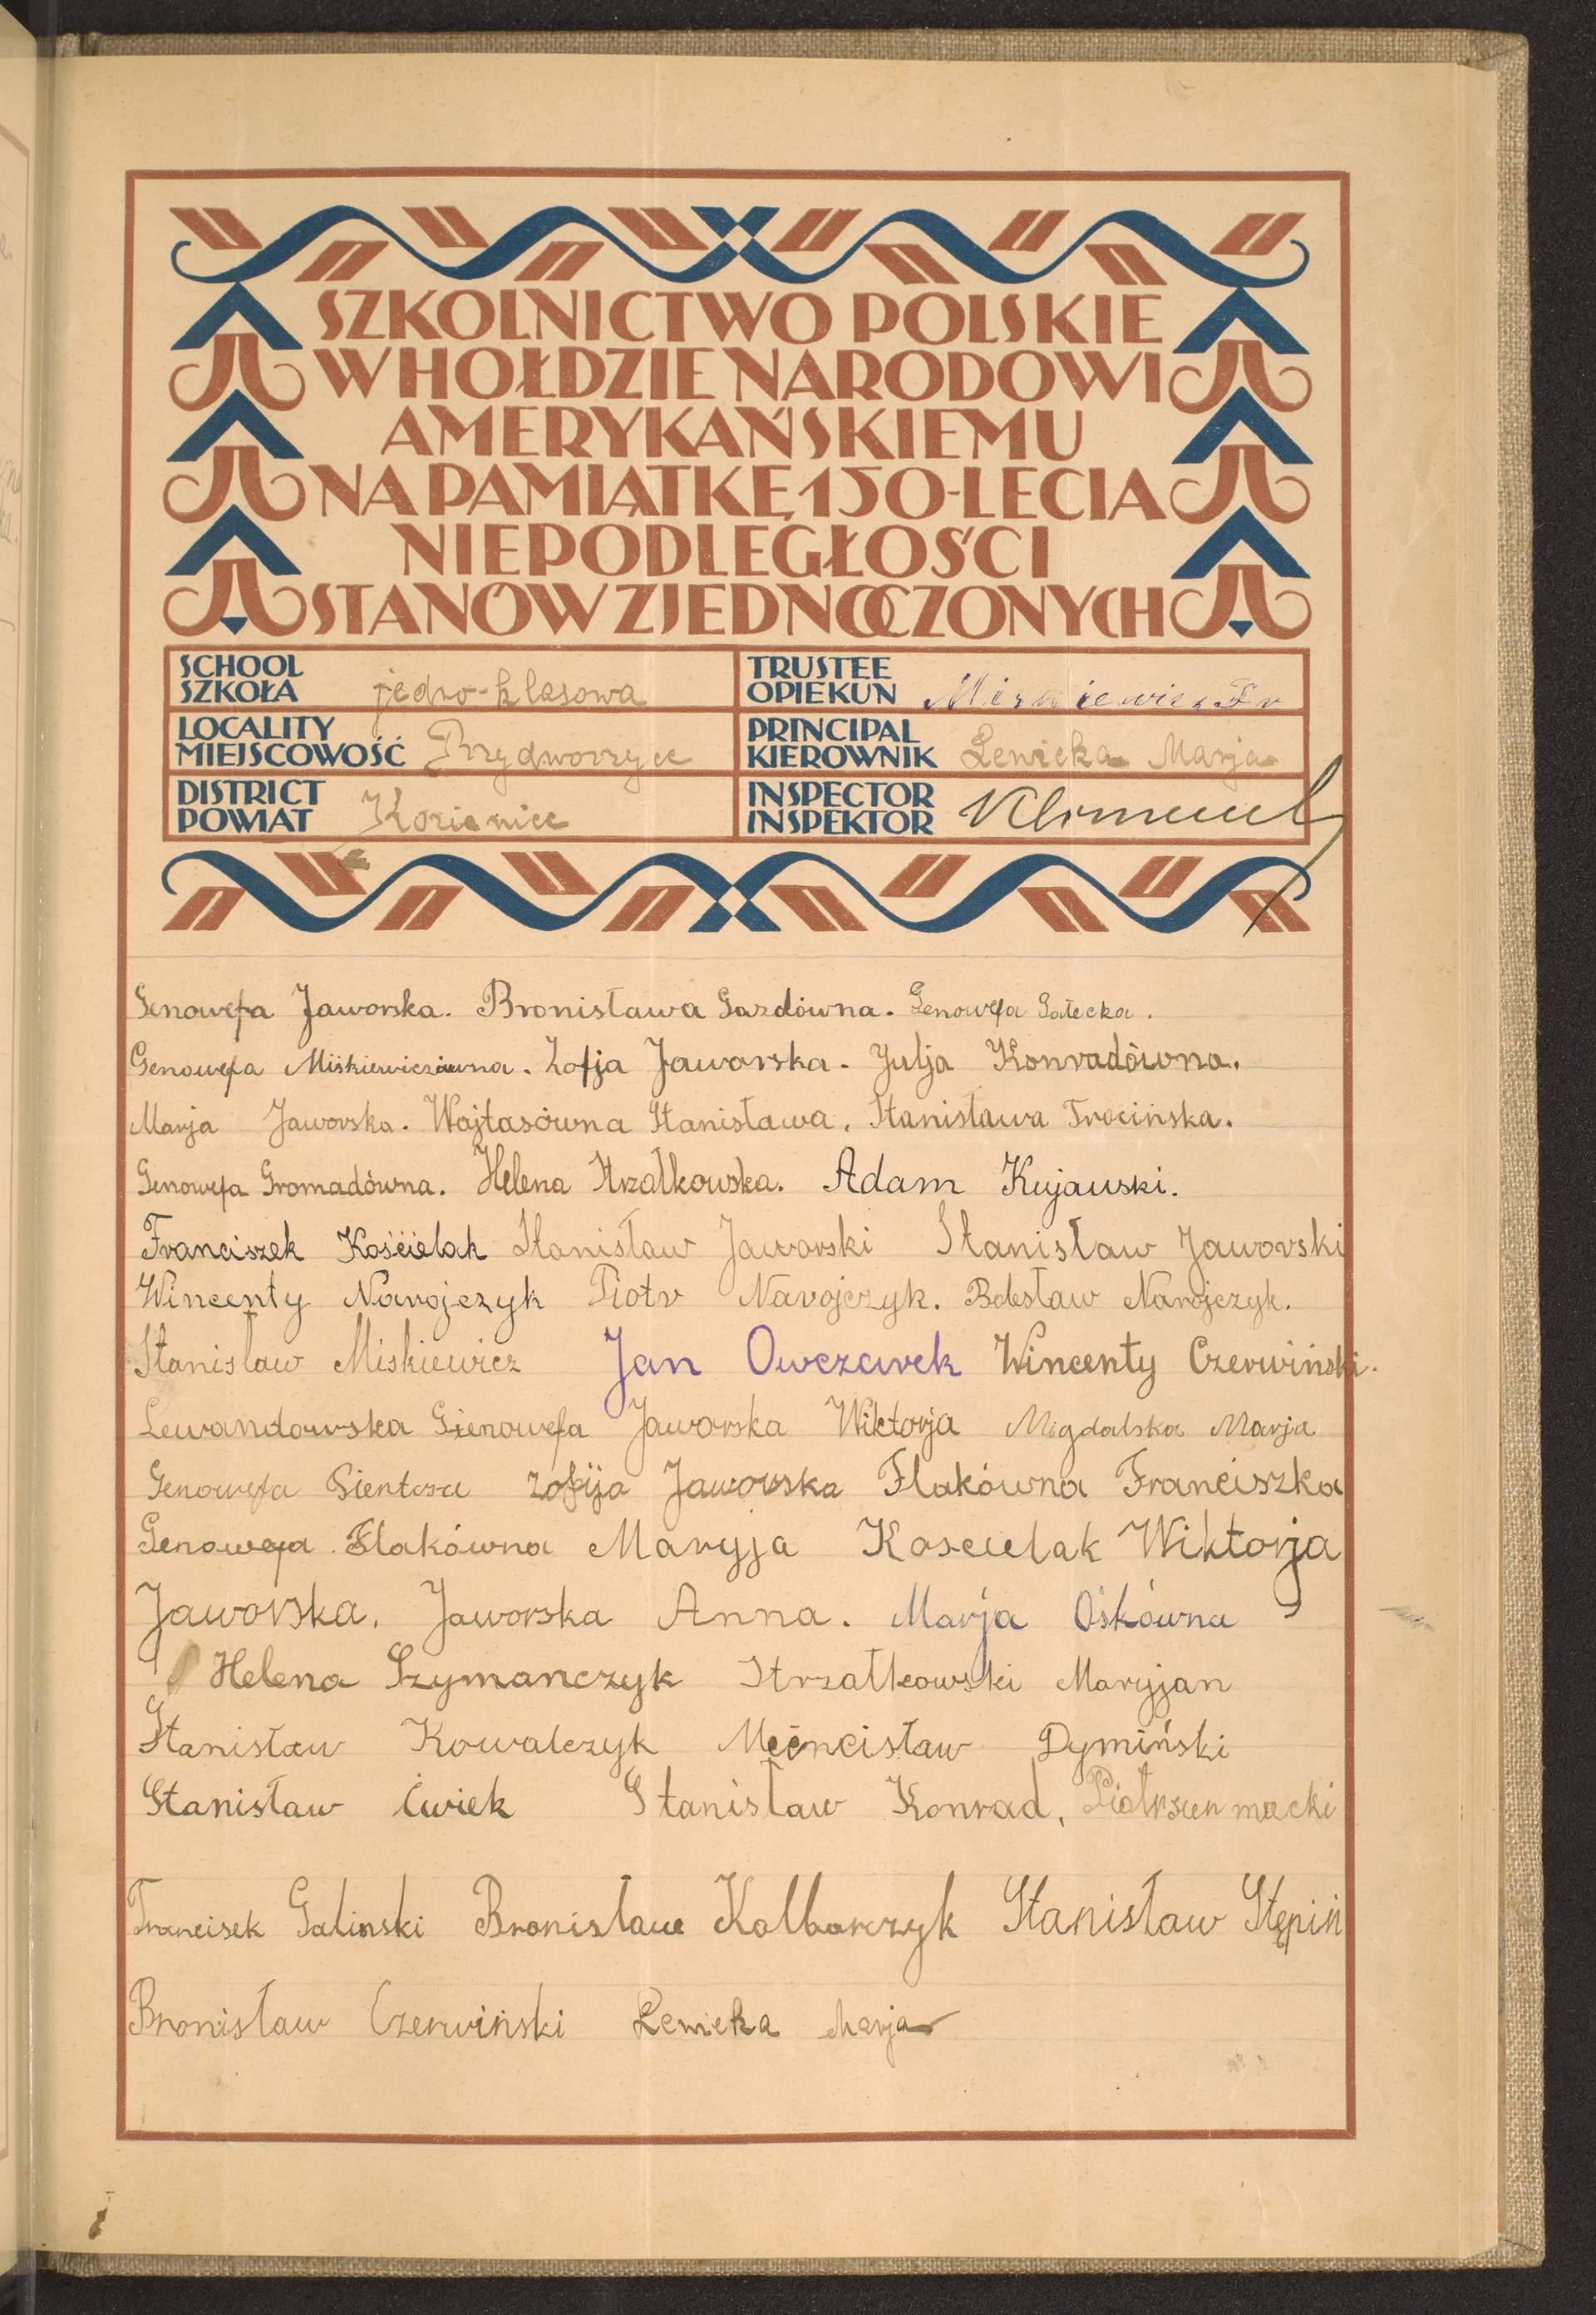 SZKOLNICTWO POLSKIE
W HOŁDZIE NARODOWI
AMERYKAŃSKIEMU
NA PAMIĄTKĘ 150-LECIA
NIEPODLEGŁOŚCI
STANÓW ZJEDNOCZONYCH
SCHOOL
SZKOŁA jedno-klasowa
TRUSTEE
OPIEKUN Miskiewicz Fr
LOCALITY
MIEJSCOWOŚĆ Przydworzyce
PRINCIPAL
KIEROWNIK Lewicka Marja
DISTRICT
POWIAT Kozienice
INSPECTOR
INSPEKTOR
Genowefa Jaworska. Bronisława Gazdówna. Genowefa Gałecka.
Genowefa Miśkiewiczówna. Zofja Jaworska. Julja Konradówna.
Marja Jaworska. Wojtasówna Stanisława. Stanisława Trocińska.
Genowefa Gromadówna. Helena Strzałkowska. Adam Kujawski.
Franciszek Kościelak Stanisław Jaworski Stanisław Jaworski
Wincenty Narojczyk Piotr Narojczyk. Bolesław Narojczyk.
Stanisław Miskiewicz Jan Owczarek Wincenty Czerwiński.
Lewandowska Gienowefa Jaworska Wiktorja Migdalska Marja
Genowefa Zofija Jaworska Flakówna Franciszka
Genowefa Flakówna Maryja Koscielak Wiktorja
Jaworska. Jaworska Anna. Marja Ośkówna
Helena Szymanczyk Strzałkowski Maryjan
Stanisław Kowalczyk Mieńcisław Dymiński
Stanisław Ćwiek Stanisław Konrad,
Francisek Galinski Bronisław Kolbarczyk Stanisław Stępiń
Bronisław Czerwiński Lewicka Marja